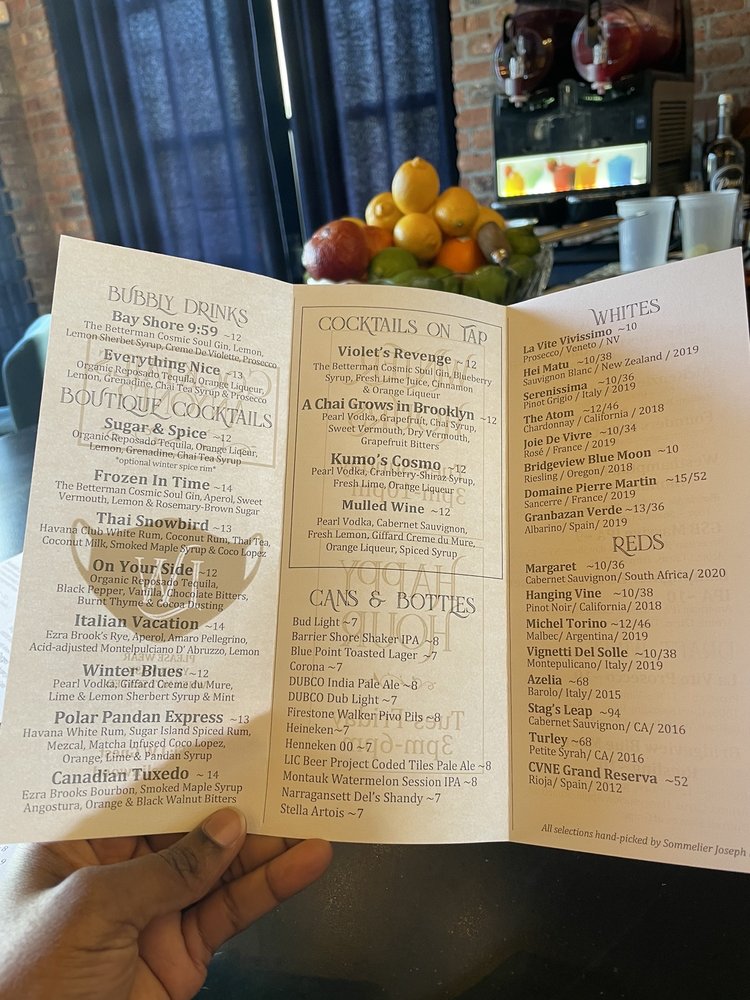 BUBBLY DRINKS
Bay Shore 9:59 ~12
The Betterman Cosmic Soul Gin, Lemon,
Lemon Sherbet Syrup, Creme De Violette, Prosecco
Everything Nice ~13
Organic Reposado Tequila, Orange Liqueur,
Lemon, Grenadine, Chai Tea Syrup & Prosecco
BOUTIQUE COCKTAILS
Sugar & Spice ~12
Organic Reposado Tequila, Orange Liqeur,
Lemon, Grenadine, Chai Tea Syrup
*optional winter spice rim*
Frozen In Time ~14
The Betterman Cosmic Soul Gin, Aperol, Sweet
Vermouth, Lemon & Rosemary-Brown Sugar
Thai Snowbird ~13
Havana Club White Rum, Coconut Rum, Thai Tea,
Coconut Milk, Smoked Maple Syrup & Coco Lopez
On Your Side ~12
Organic Reposado Tequila,
Black Pepper, Vanilla, Chocolate Bitters,
Burnt Thyme & Cocoa Dusting
Italian Vacation ~14
Ezra Brook's Rye, Aperol, Amaro Pellegrino,
Acid-adjusted Montelpulciano D' Abruzzo, Lemon
Winter Blues ~12
Pearl Vodka, Giffard Creme du Mure,
Lime & Lemon Sherbert Syrup & Mint
Polar Pandan Express ~13
Havana White Rum, Sugar Island Spiced Rum,
Mezcal, Matcha Infused Coco Lopez,
Orange, Lime & Pandan Syrup
Canadian Tuxedo ~ 14
Ezra Brooks Bourbon, Smoked Maple Syrup
Angostura, Orange & Black Walnut Bitters
COCKTAILS ON TAP
Violet's Revenge ~12
The Betterman Cosmic Soul Gin, Blueberry
Syrup, Fresh Lime Juice, Cinnamon
& Orange Liqueur
A Chai Grows in Brooklyn ~12
Pearl Vodka, Grapefruit, Chai Syrup,
Sweet Vermouth, Dry Vermouth,
Grapefruit Bitters
Kumo's Cosmo ~12
Pearl Vodka, Cranberry-Shiraz Syrup,
Fresh Lime, Orange Liqueur
Mulled Wine ~12
Pearl Vodka, Cabernet Sauvignon,
Fresh Lemon, Giffard Creme du Mure,
Orange Liqueur, Spiced Syrup
CANS & BOTTLES
Bud Light ~7
Barrier Shore Shaker IPA ~8
Blue Point Toasted Lager ~7
Corona ~7
DUBCO India Pale Ale ~8
DUBCO Dub Light ~7
Firestone Walker Pivo Pils ~8
Heineken ~7
Henneken 00 ~7
LIC Beer Project Coded Tiles Pale Ale ~8
Montauk Watermelon Session IPA ~8
Narragansett Del's Shandy ~7
Stella Artois ~7
WHITES
La Vite Vivissimo ~10
Prosecco/ Veneto / NV
Hei Matu ~10/38
Sauvignon Blanc / New Zealand / 2019
Serenissima ~10/36
Pinot Grigio / Italy / 2019
The Atom ~12/46
Chardonnay / California / 2018
Joie De Vivre ~10/34
Rosé / France / 2019
Bridgeview Blue Moon ~10
Riesling / Oregon/ 2018
Domaine Pierre Martin ~15/52
Sancerre / France/ 2019
Granbazan Verde ~13/36
Albarino / Spain/ 2019
REDS
Margaret ~10/36
Cabernet Sauvignon/ South Africa/ 2020
Hanging Vine ~10/38
Pinot Noir/ California/ 2018
Michel Torino ~12/46
Malbec/ Argentina/ 2019
Vignetti Del Solle ~10/38
Montepulicano/ Italy/ 2019
Azelia ~68
Barolo/ Italy/ 2015
Stag's Leap ~94
Cabernet Sauvignon/ CA/ 2016
Turley ~68
Petite Syrah/ CA/ 2016
CVNE Grand Reserva ~52
Rioja/ Spain/ 2012
All selections hand-picked by Sommelier Joseph